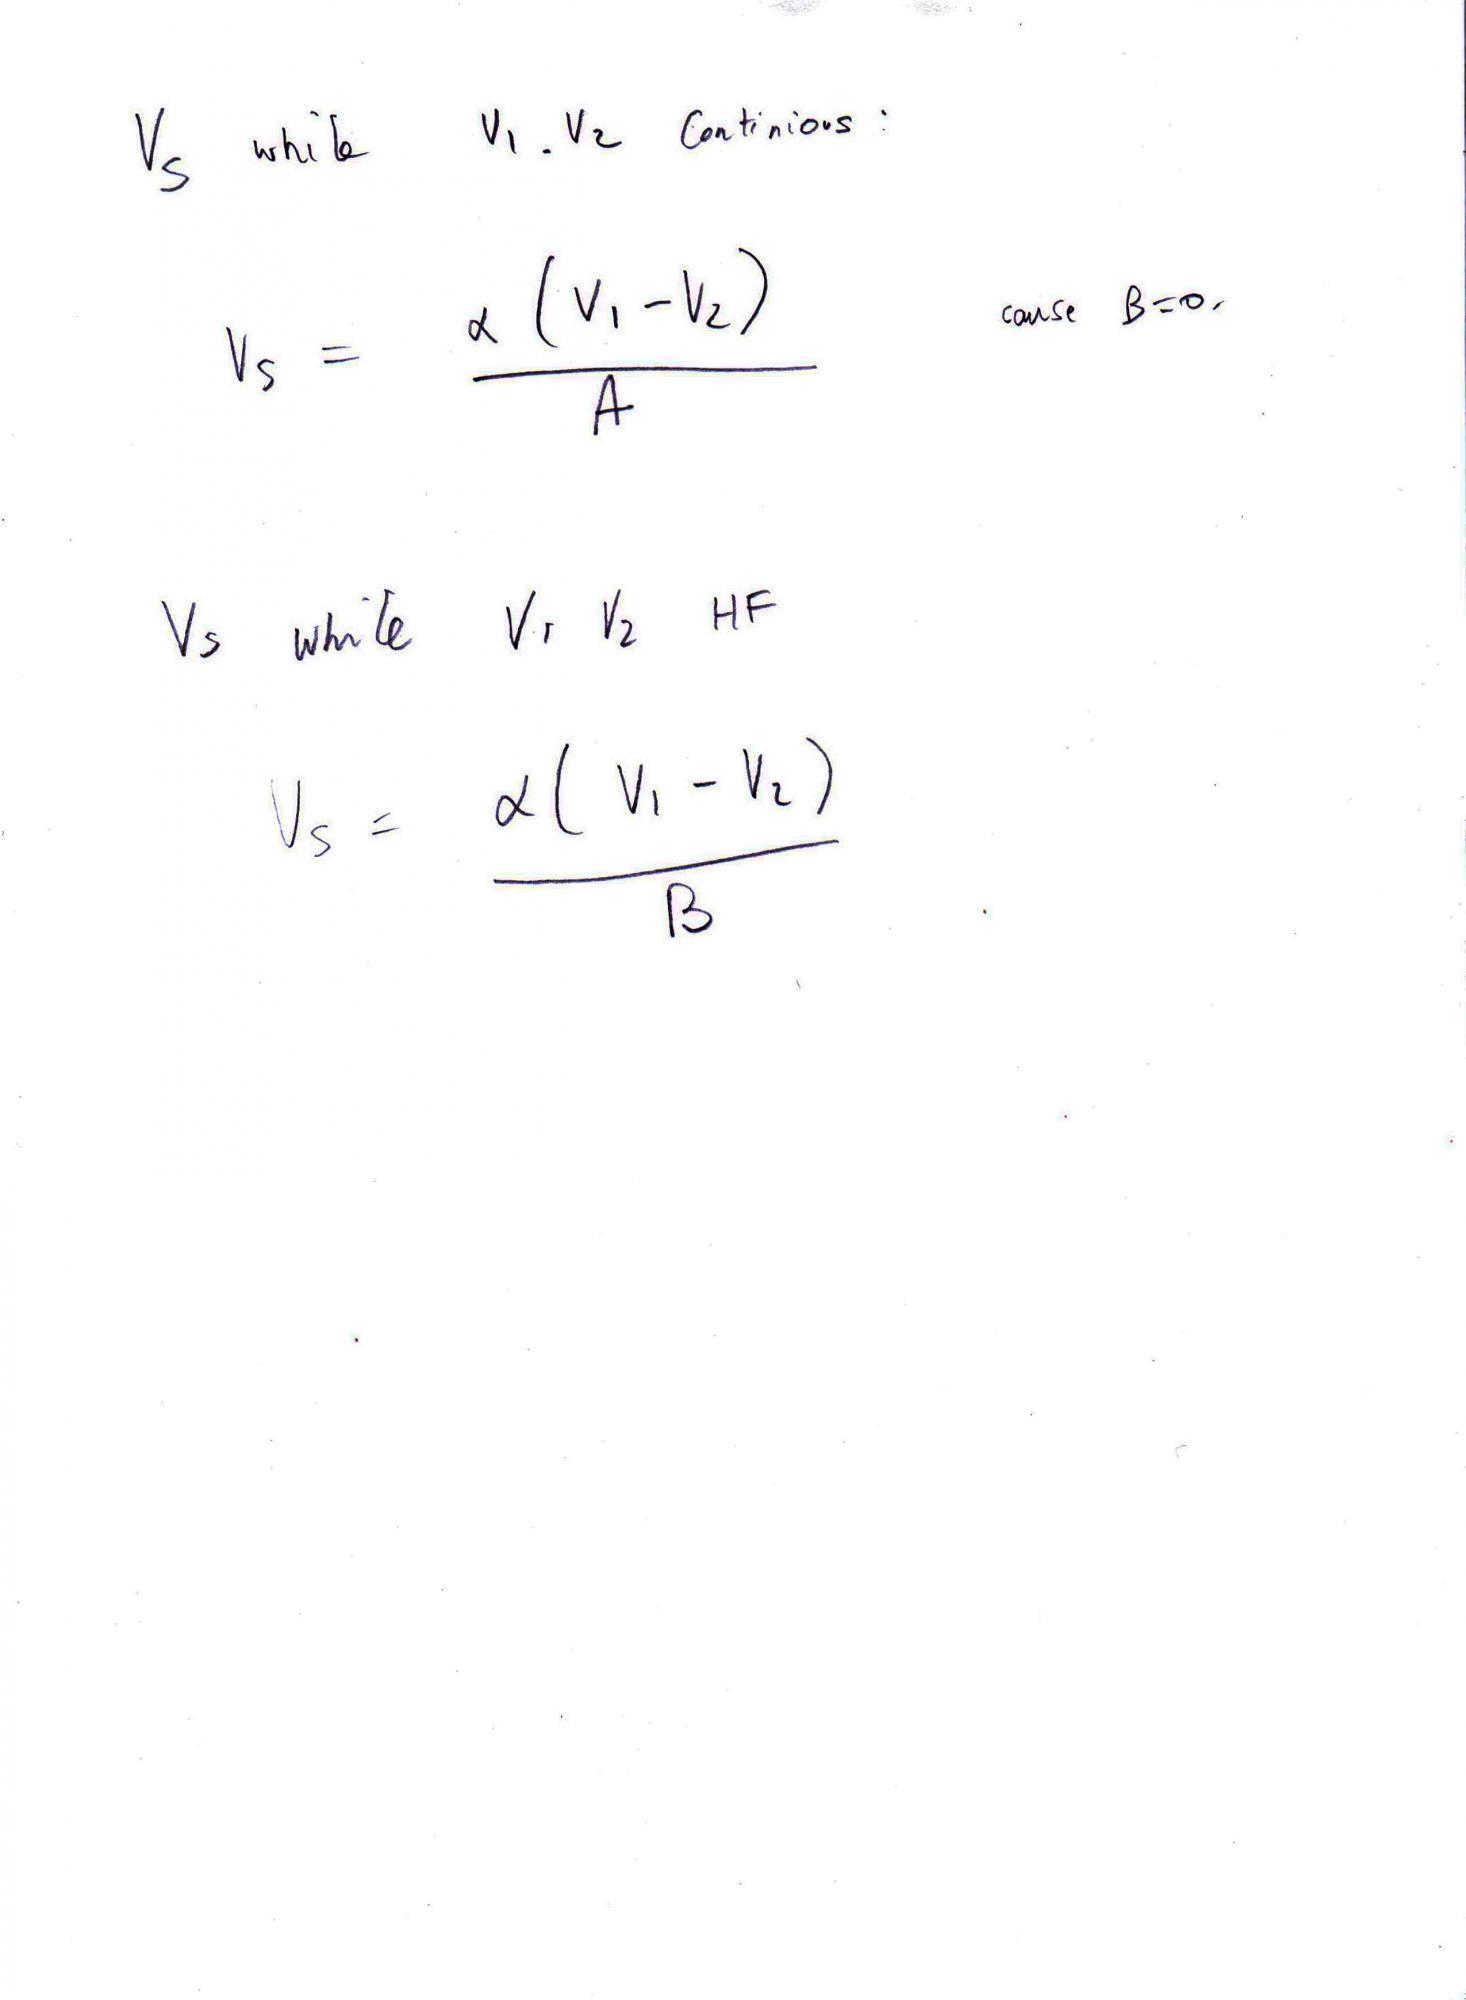 Vs while V1 . V2 Continious :
Vs = α (V1 - V2) / A cause B=0.
Vs while V1 V2 HF
Vs = α( V1 - V2) / B